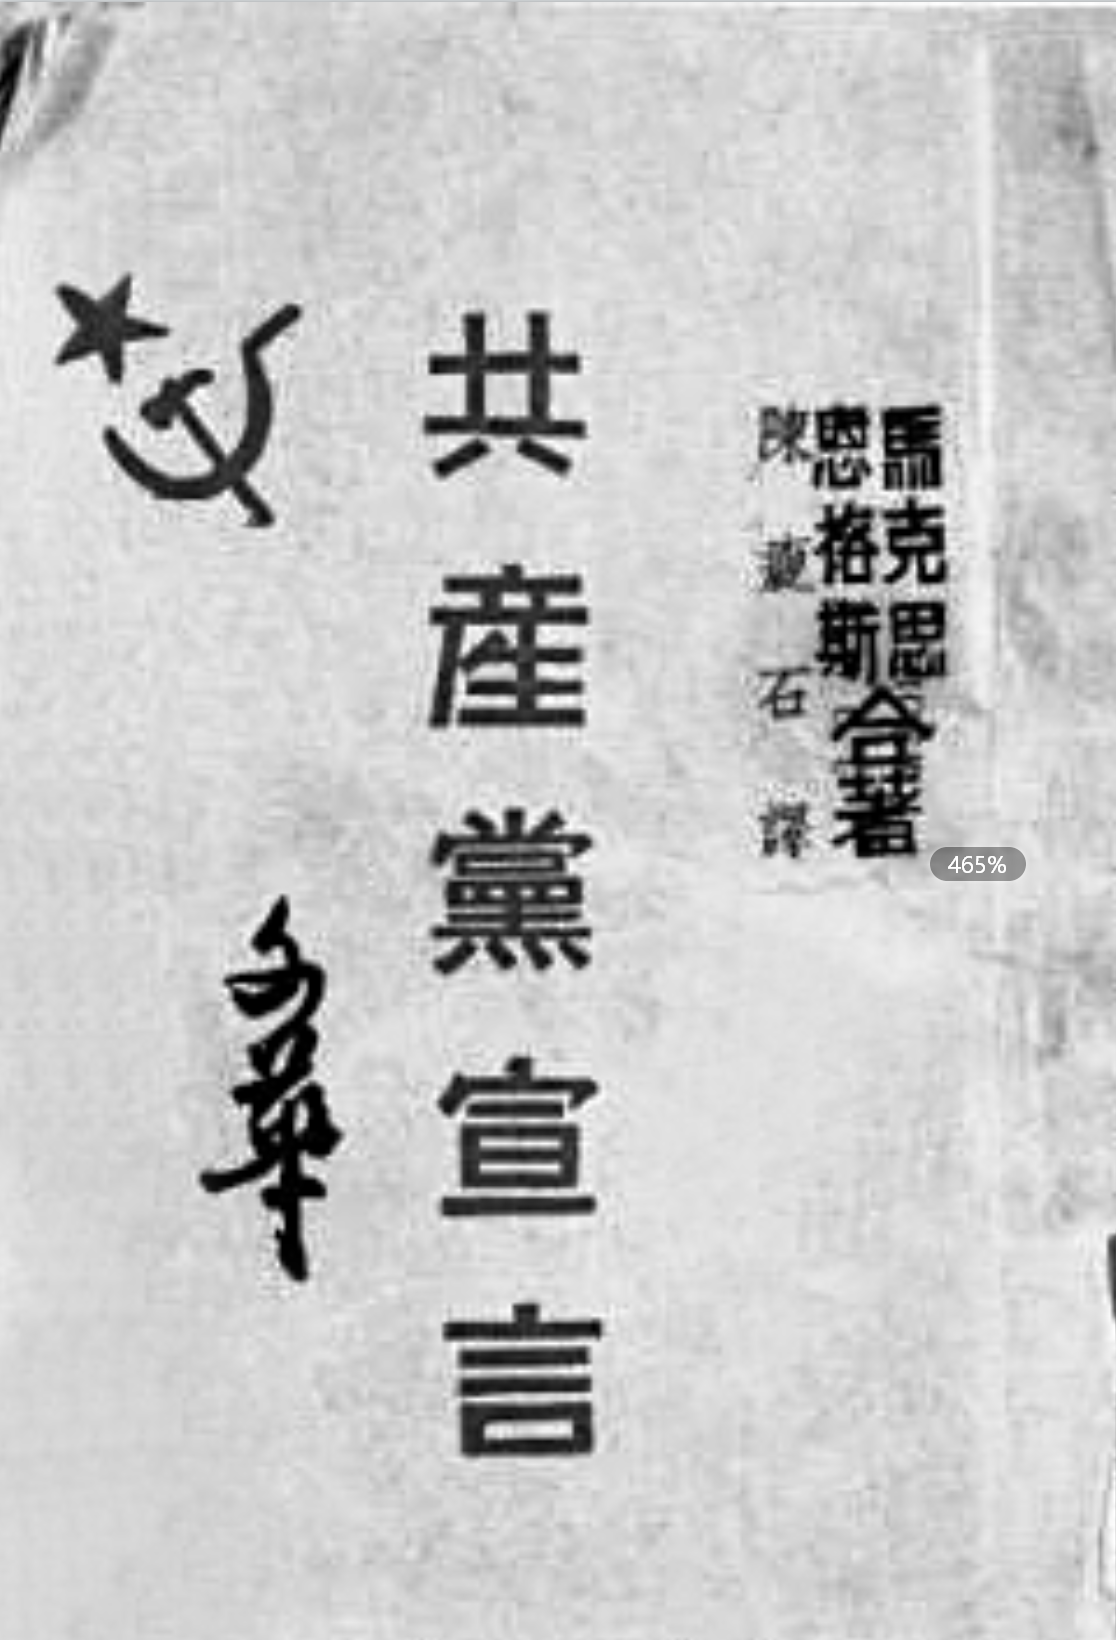 馬克思
恩格斯
合著
陳瘦石譯
共産黨宣言
465%